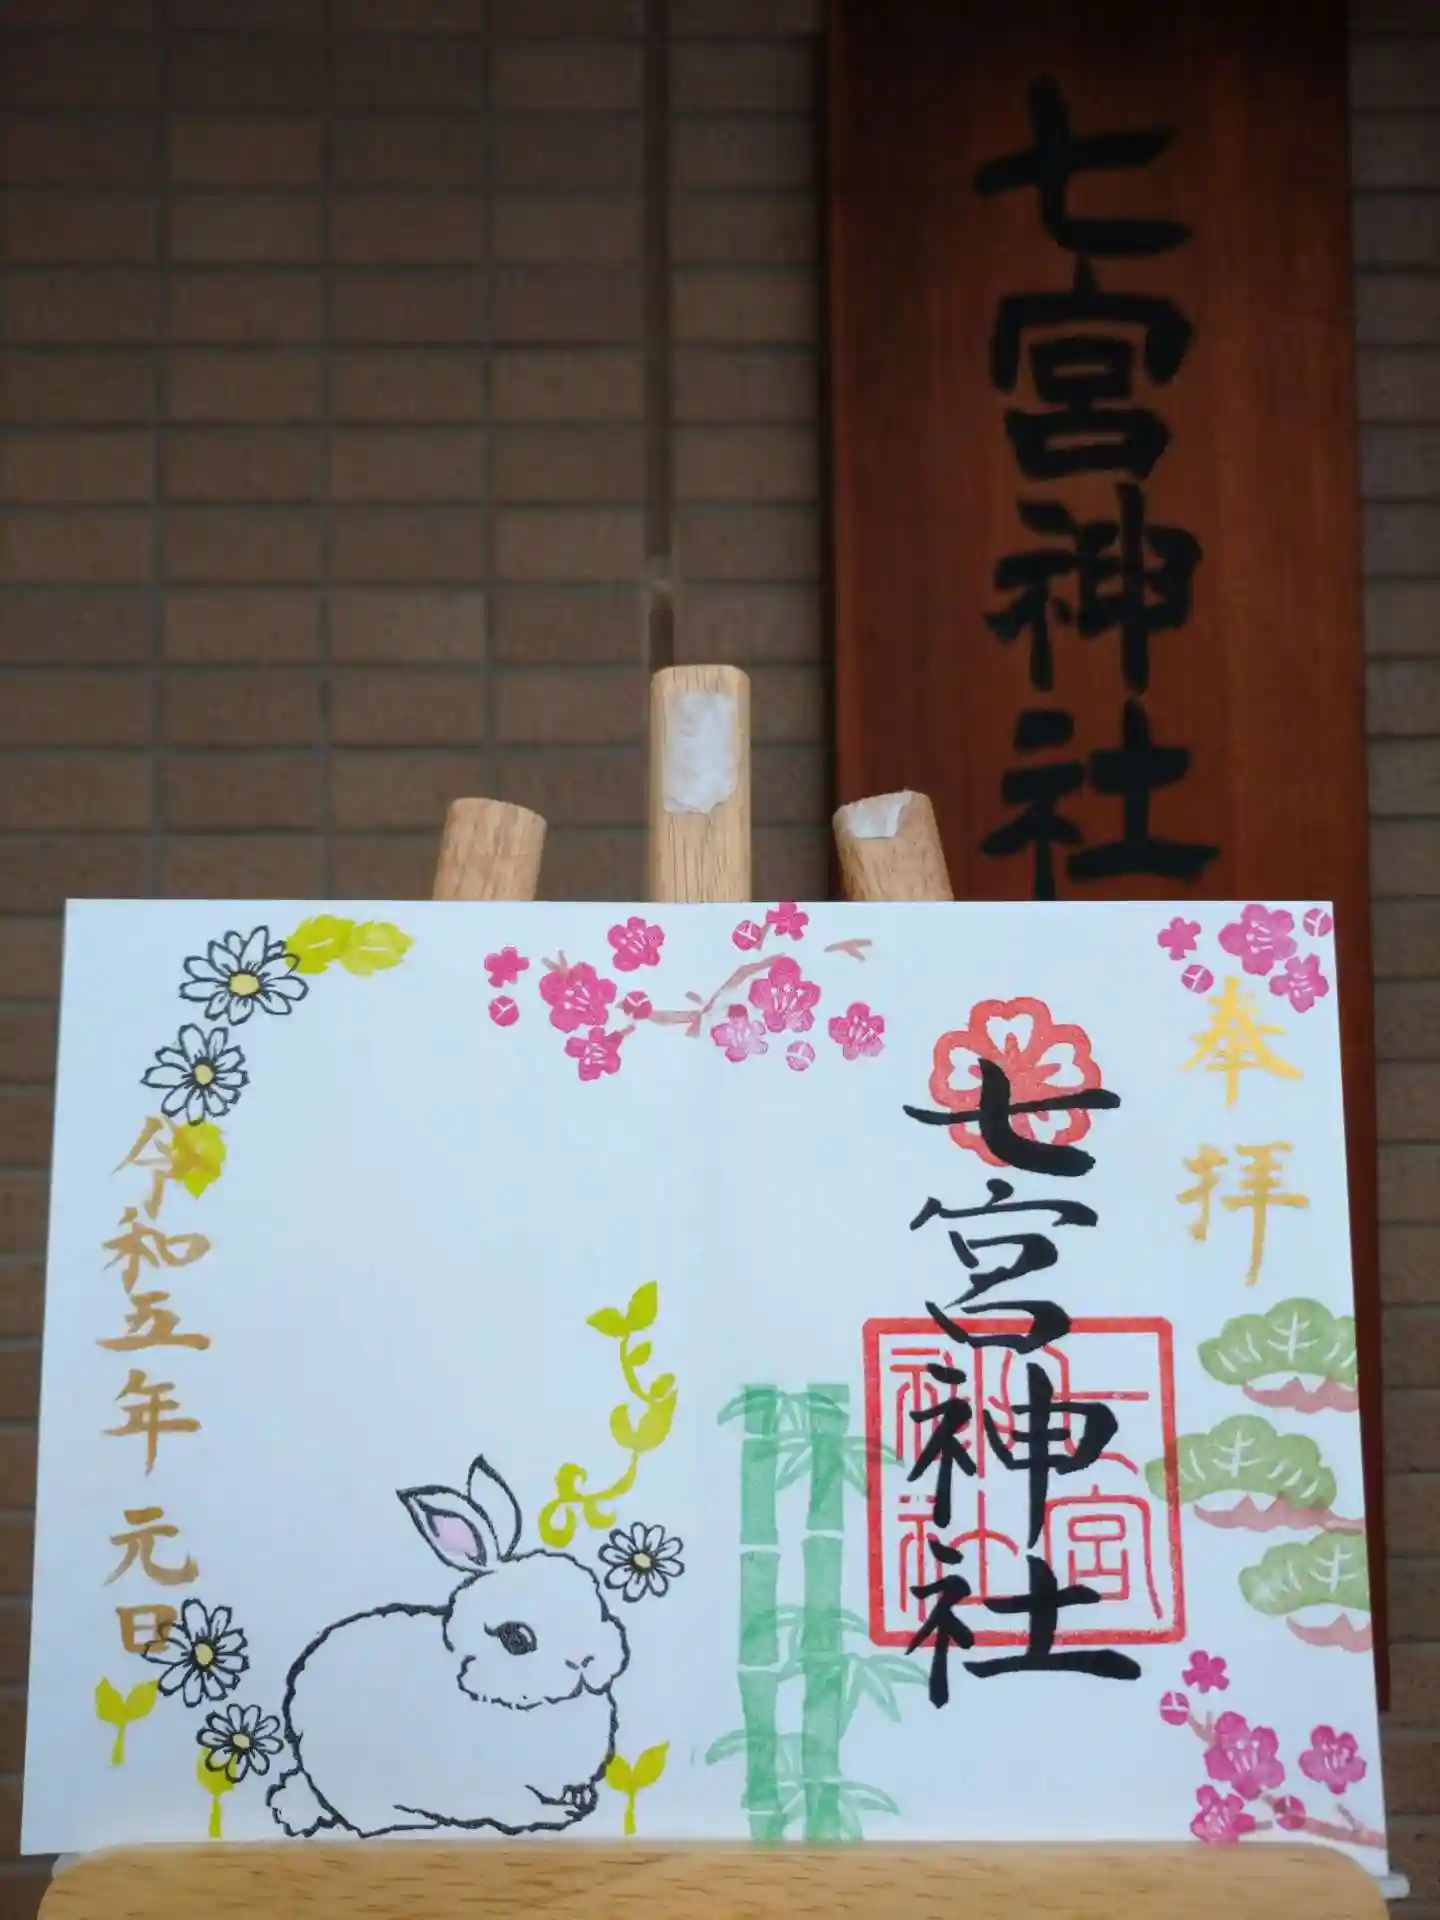 七宮神社
奉拝
七宮神社
七宮
神社
令和五年元日